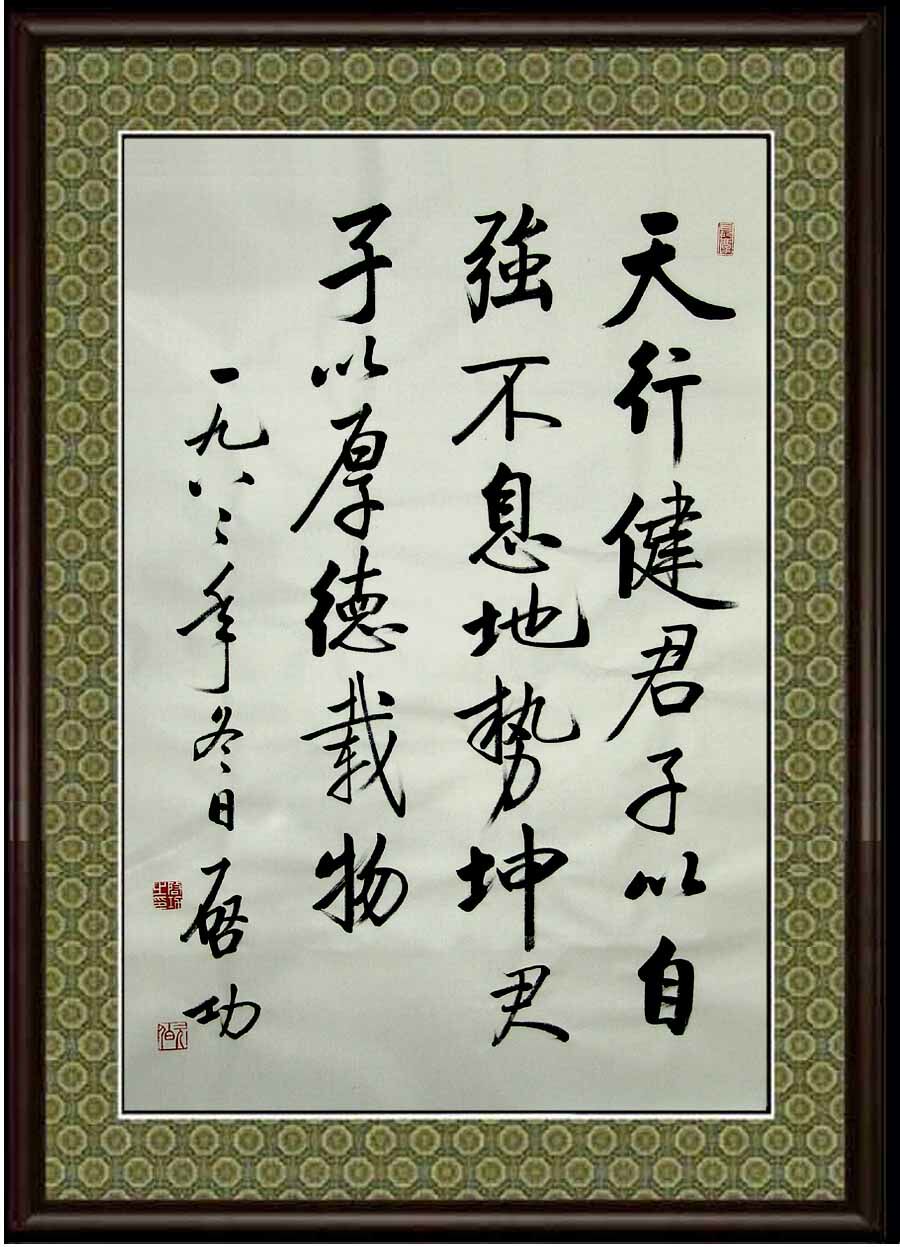 天行健君子以自
強不息地勢坤君
子以厚德載物
一九八二年冬日 啓功